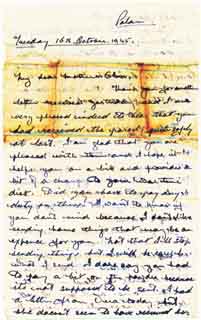 Palam
Tuesday 16th October 1945.
My dear Mother & 
Thank you for another
letter received yesterday and I am
very pleased indeed to hear that you
had received the parcel quite safely
at last. I am glad that you are
pleased with items and I hope it'll
help you on a bit and provide a
bit of a change to your wartime
diet. Did you have to pay any
duty on them? I want to know if
you don't mind because I don't like
sending home things that may be an
expense for you. Not that I'll stop
sending things, but I will be
what I send. I dare say you had
to pay a bit on my because
it's not supposed to be sent. I had
a letter from today but
she doesn't seem to have received her